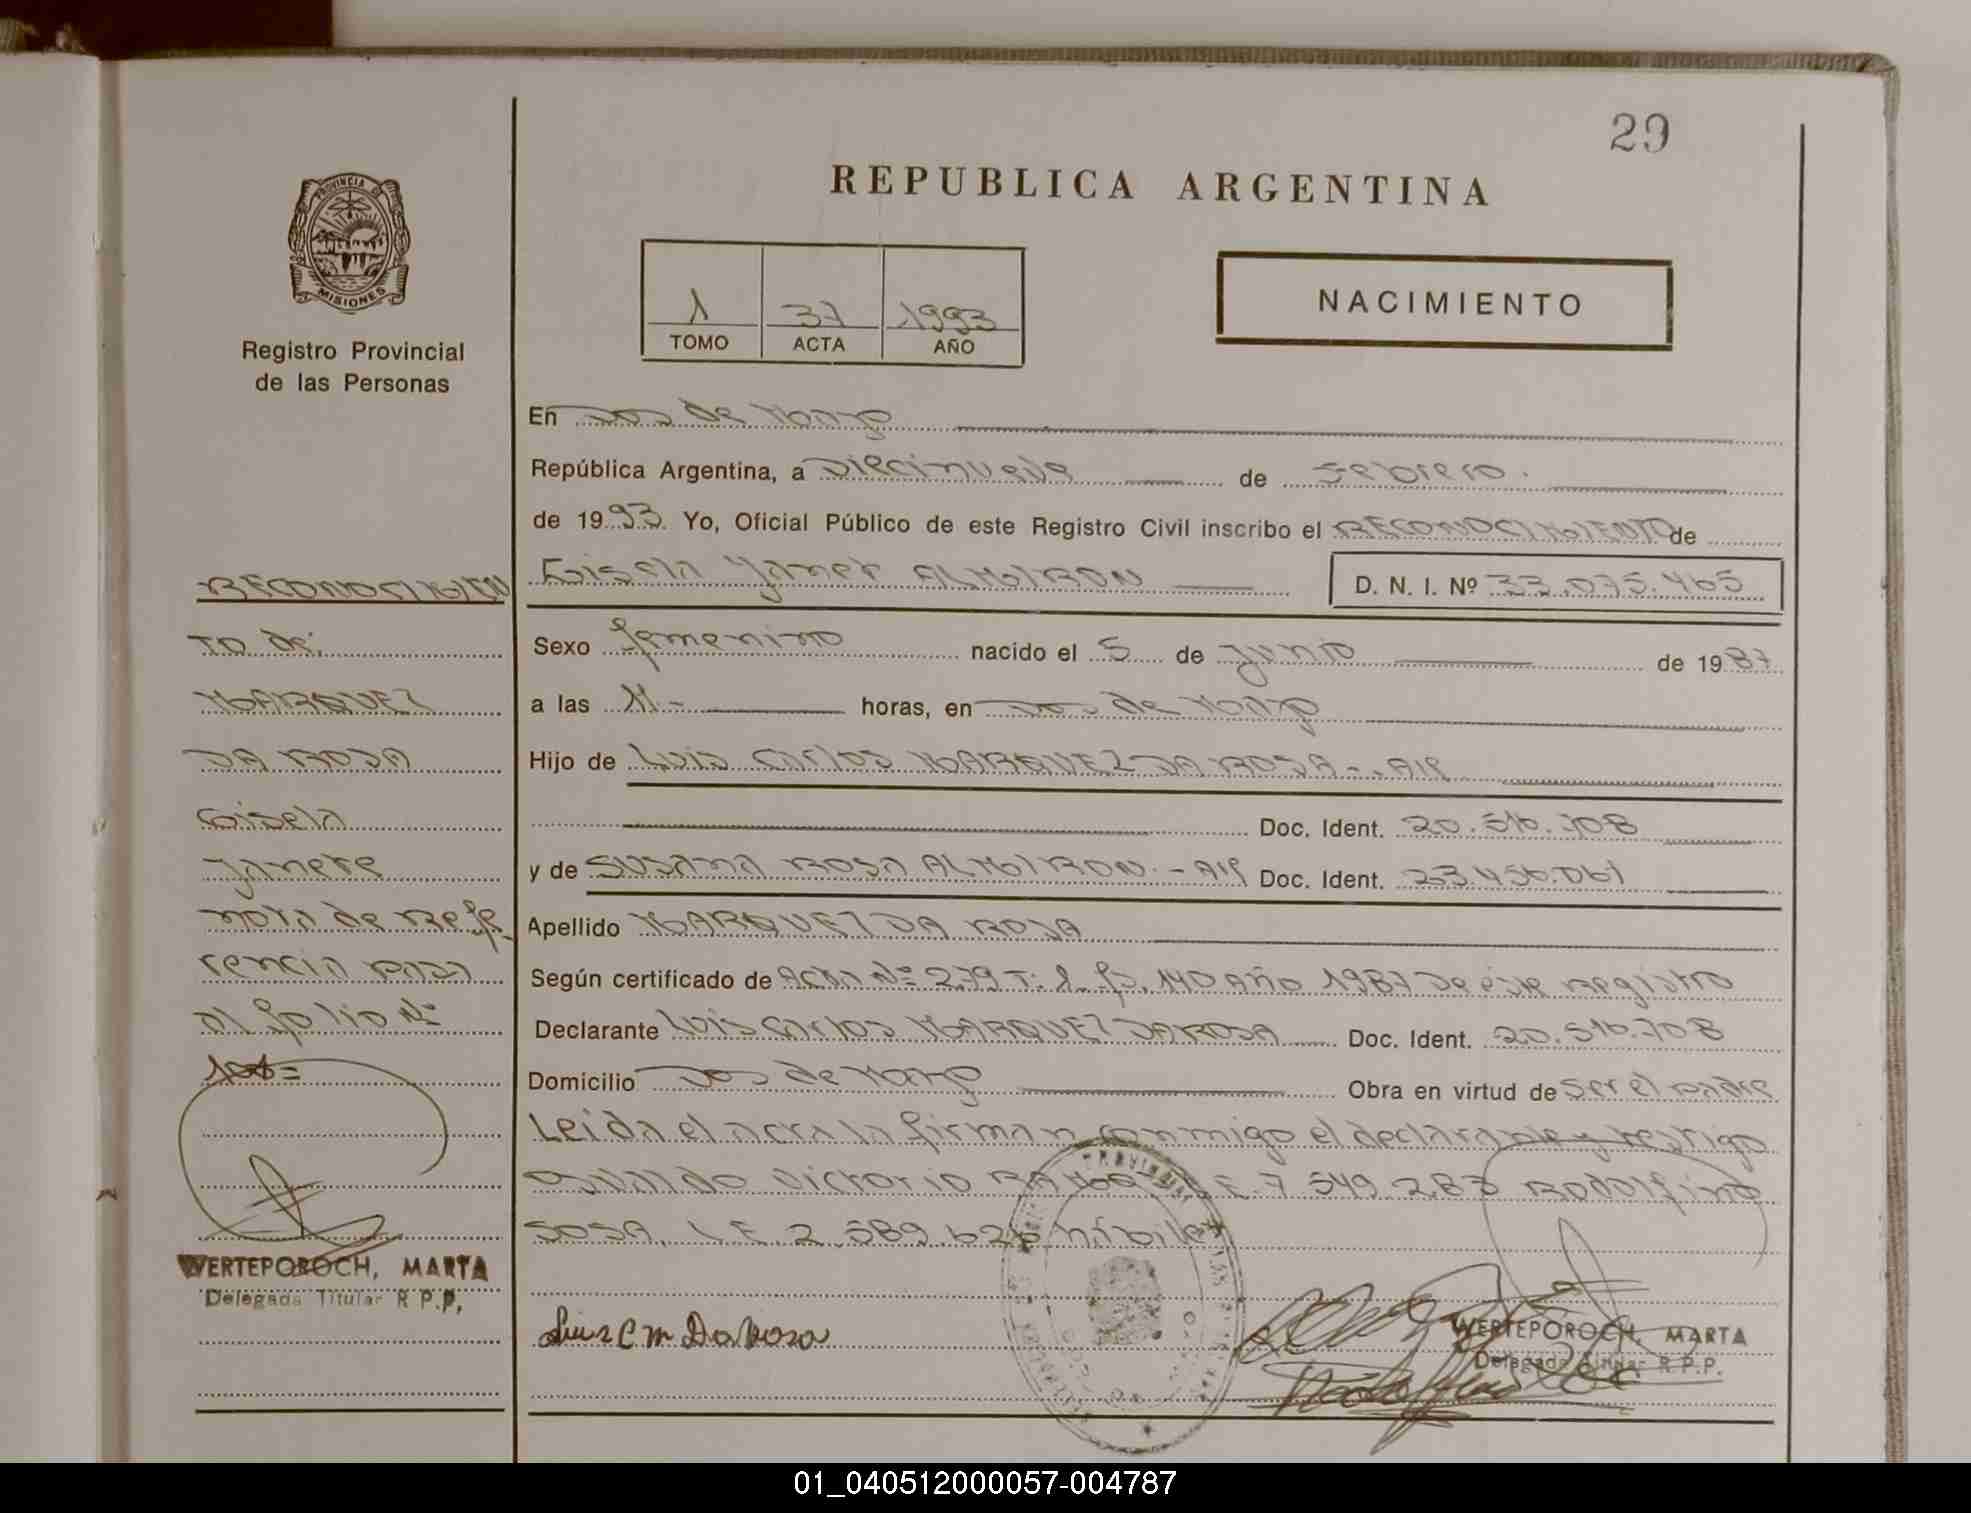 29
REPUBLICA ARGENTINA
PROVINCIA DE
MISIONES
Registro Provincial
de las Personas
1 37 1993
TOMO ACTA AÑO
NACIMIENTO
En Dos de Mayo
República Argentina, a Diecinueve de Febrero.
de 1993. Yo, Oficial Público de este Registro Civil inscribo el RECONOCIMIENTO de
Gisela Yanet ALMIRON D. N. I. Nº 33.075.465
Sexo femenino nacido el 5 de junio de 1987
a las 11- horas, en Dos de Mayo
Hijo de Luis Carlos MARQUEZ DA ROSA -
Doc. Ident. 20.516.708
y de SUSANA ROSA ALMIRON.- Doc. Ident. 23.456.061
Apellido MARQUEZ DA ROSA
Según certificado de Acta Nº 279 T: fº. 140 Año 1987 de éste Registro
Declarante Luis Carlos MARQUEZ DA ROSA Doc. Ident. 20.516.708
Domicilio Dos de Mayo Obra en virtud de ser el padre
Leida el acta la firman conmigo el declarante y testigo
Osvaldo Victorio L.E. 7.549.283 Rodolfino
SOSA, L.E. 2.589.626 hábiles
Luis C M Da Rosa
WERTEPOROCH, MARTA
Delegada Titular R.P.P.
RECONOCIMIEN
TO de:
MARQUEZ
DA ROSA
Gisela
Yanete
nota de Refe
rencia pasa
al folio Nº
WERTEPOROCH, MARTA
Delegada Titular R.P.P,
01_040512000057-004787